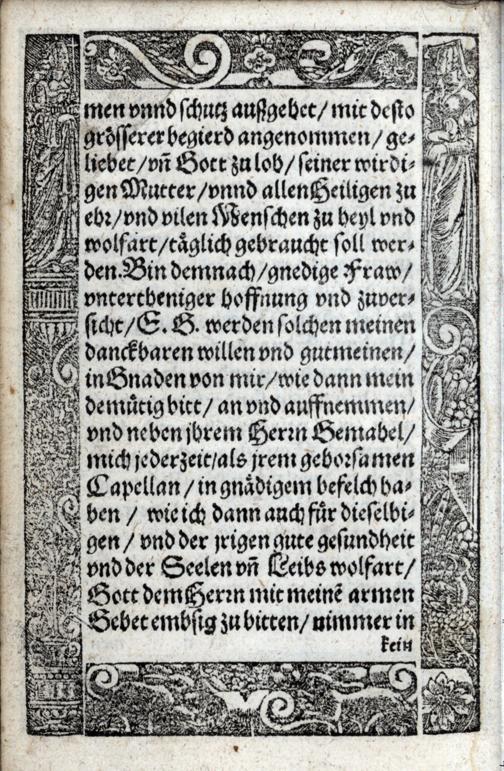 men vnnd schutz außgehet / mit desto
grösserer begierd angenommen / ge-
liebet / vñ Gott zu lob / seiner wirdi-
gen Mutter / vnnd allen Heiligen zu
ehr / vnd vilen Menschen zu heyl vnd
wolfart / täglich gebraucht soll wer-
den. Bin demnach / gnedige Fraw /
vntertheniger hoffnung vnd zuver-
sicht / E. G. werden solchen meinen
danckbaren willen vnd gutmeinen /
in Gnaden von mir / wie dann mein
demütig bitt / an vnd auffnemmen /
vnd neben jhrem Herrn Gemahel /
mich jederzeit / als jrem gehorsamen
Capellan / in gnädigem befelch ha-
ben / wie ich dann auch für dieselbi-
gen / vnd der jrigen gute gesundheit
vnd der Seelen vñ Leibs wolfart /
Gott dem Herrn mit meinẽ armen
Gebet embsig zu bitten / nimmer in
kein